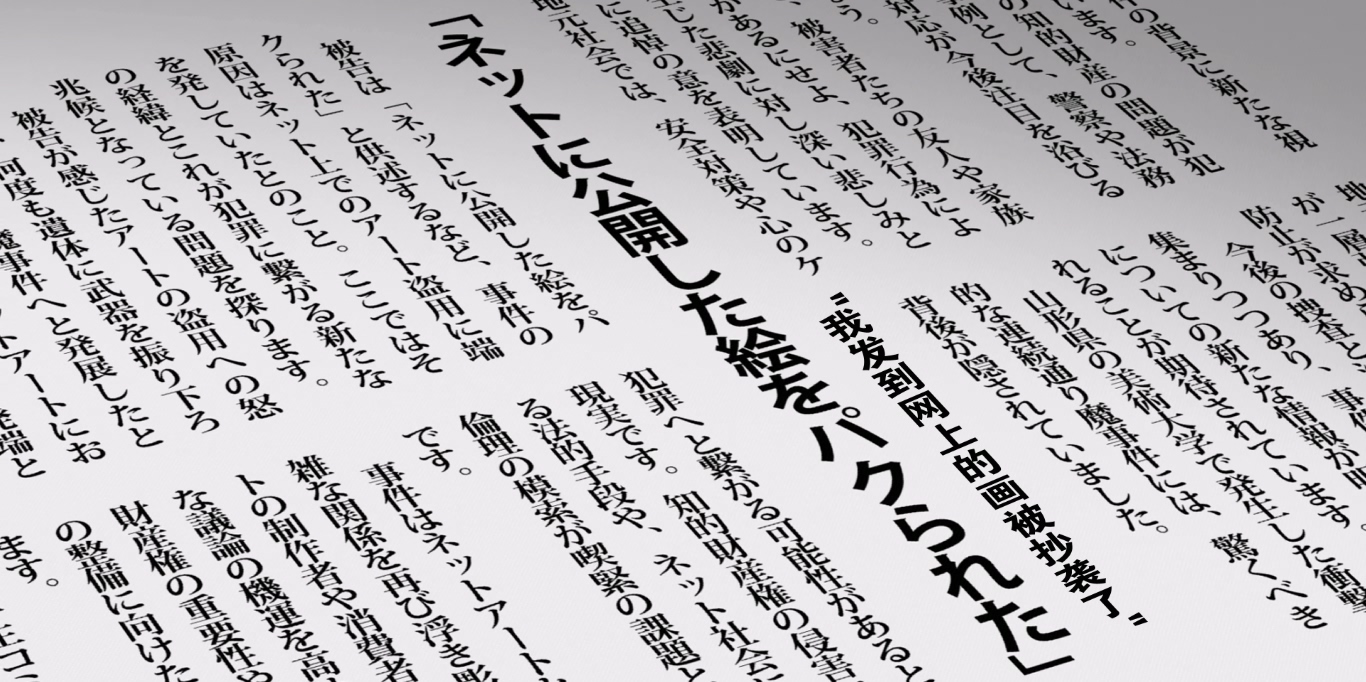 件の背景に新たな視
います。
の知的財産の問題が犯
事例として、警察や法務
対応が今後注目を浴びる
う。
被害者たちの友人や家族
があるにせよ、犯罪行為によ
生じた悲劇に対し深い悲しみと
に追悼の意を表明しています。
地元社会では、安全対策や心のケ
地
が一層
防止が求め
今後の捜査と、事件
集まりつつあり、
についての新たな情報が明
れることが期待されています。
山形県の美術大学で発生した衝撃
的な連続通り魔事件には、驚くべき
背後が隠されていました。
“我发到网上的画被抄袭了”
「ネットに公開した絵をパクられた」
被告は「ネットに公開した絵をパ
クられた」と供述するなど、事件の
原因はネット上でのアート盗用に端
を発していたとのこと。ここではそ
の経緯とこれが犯罪に繋がる新たな
兆候となっている問題を探ります。
被告が感じたアートの盗用への怒
何度も遺体に武器を振り下ろ
魔事件へと発展したと
トアートにお
発端と
犯罪へと繋がる可能性があると
現実です。知的財産権の侵害
る法的手段や、ネット社会に
倫理の模索が喫緊の課題と
です。
事件はネットアート
雑な関係を再び浮き彫
トの制作者や消費者
な議論の機運を高
財産権の重要性や
の整備に向けた
ます。